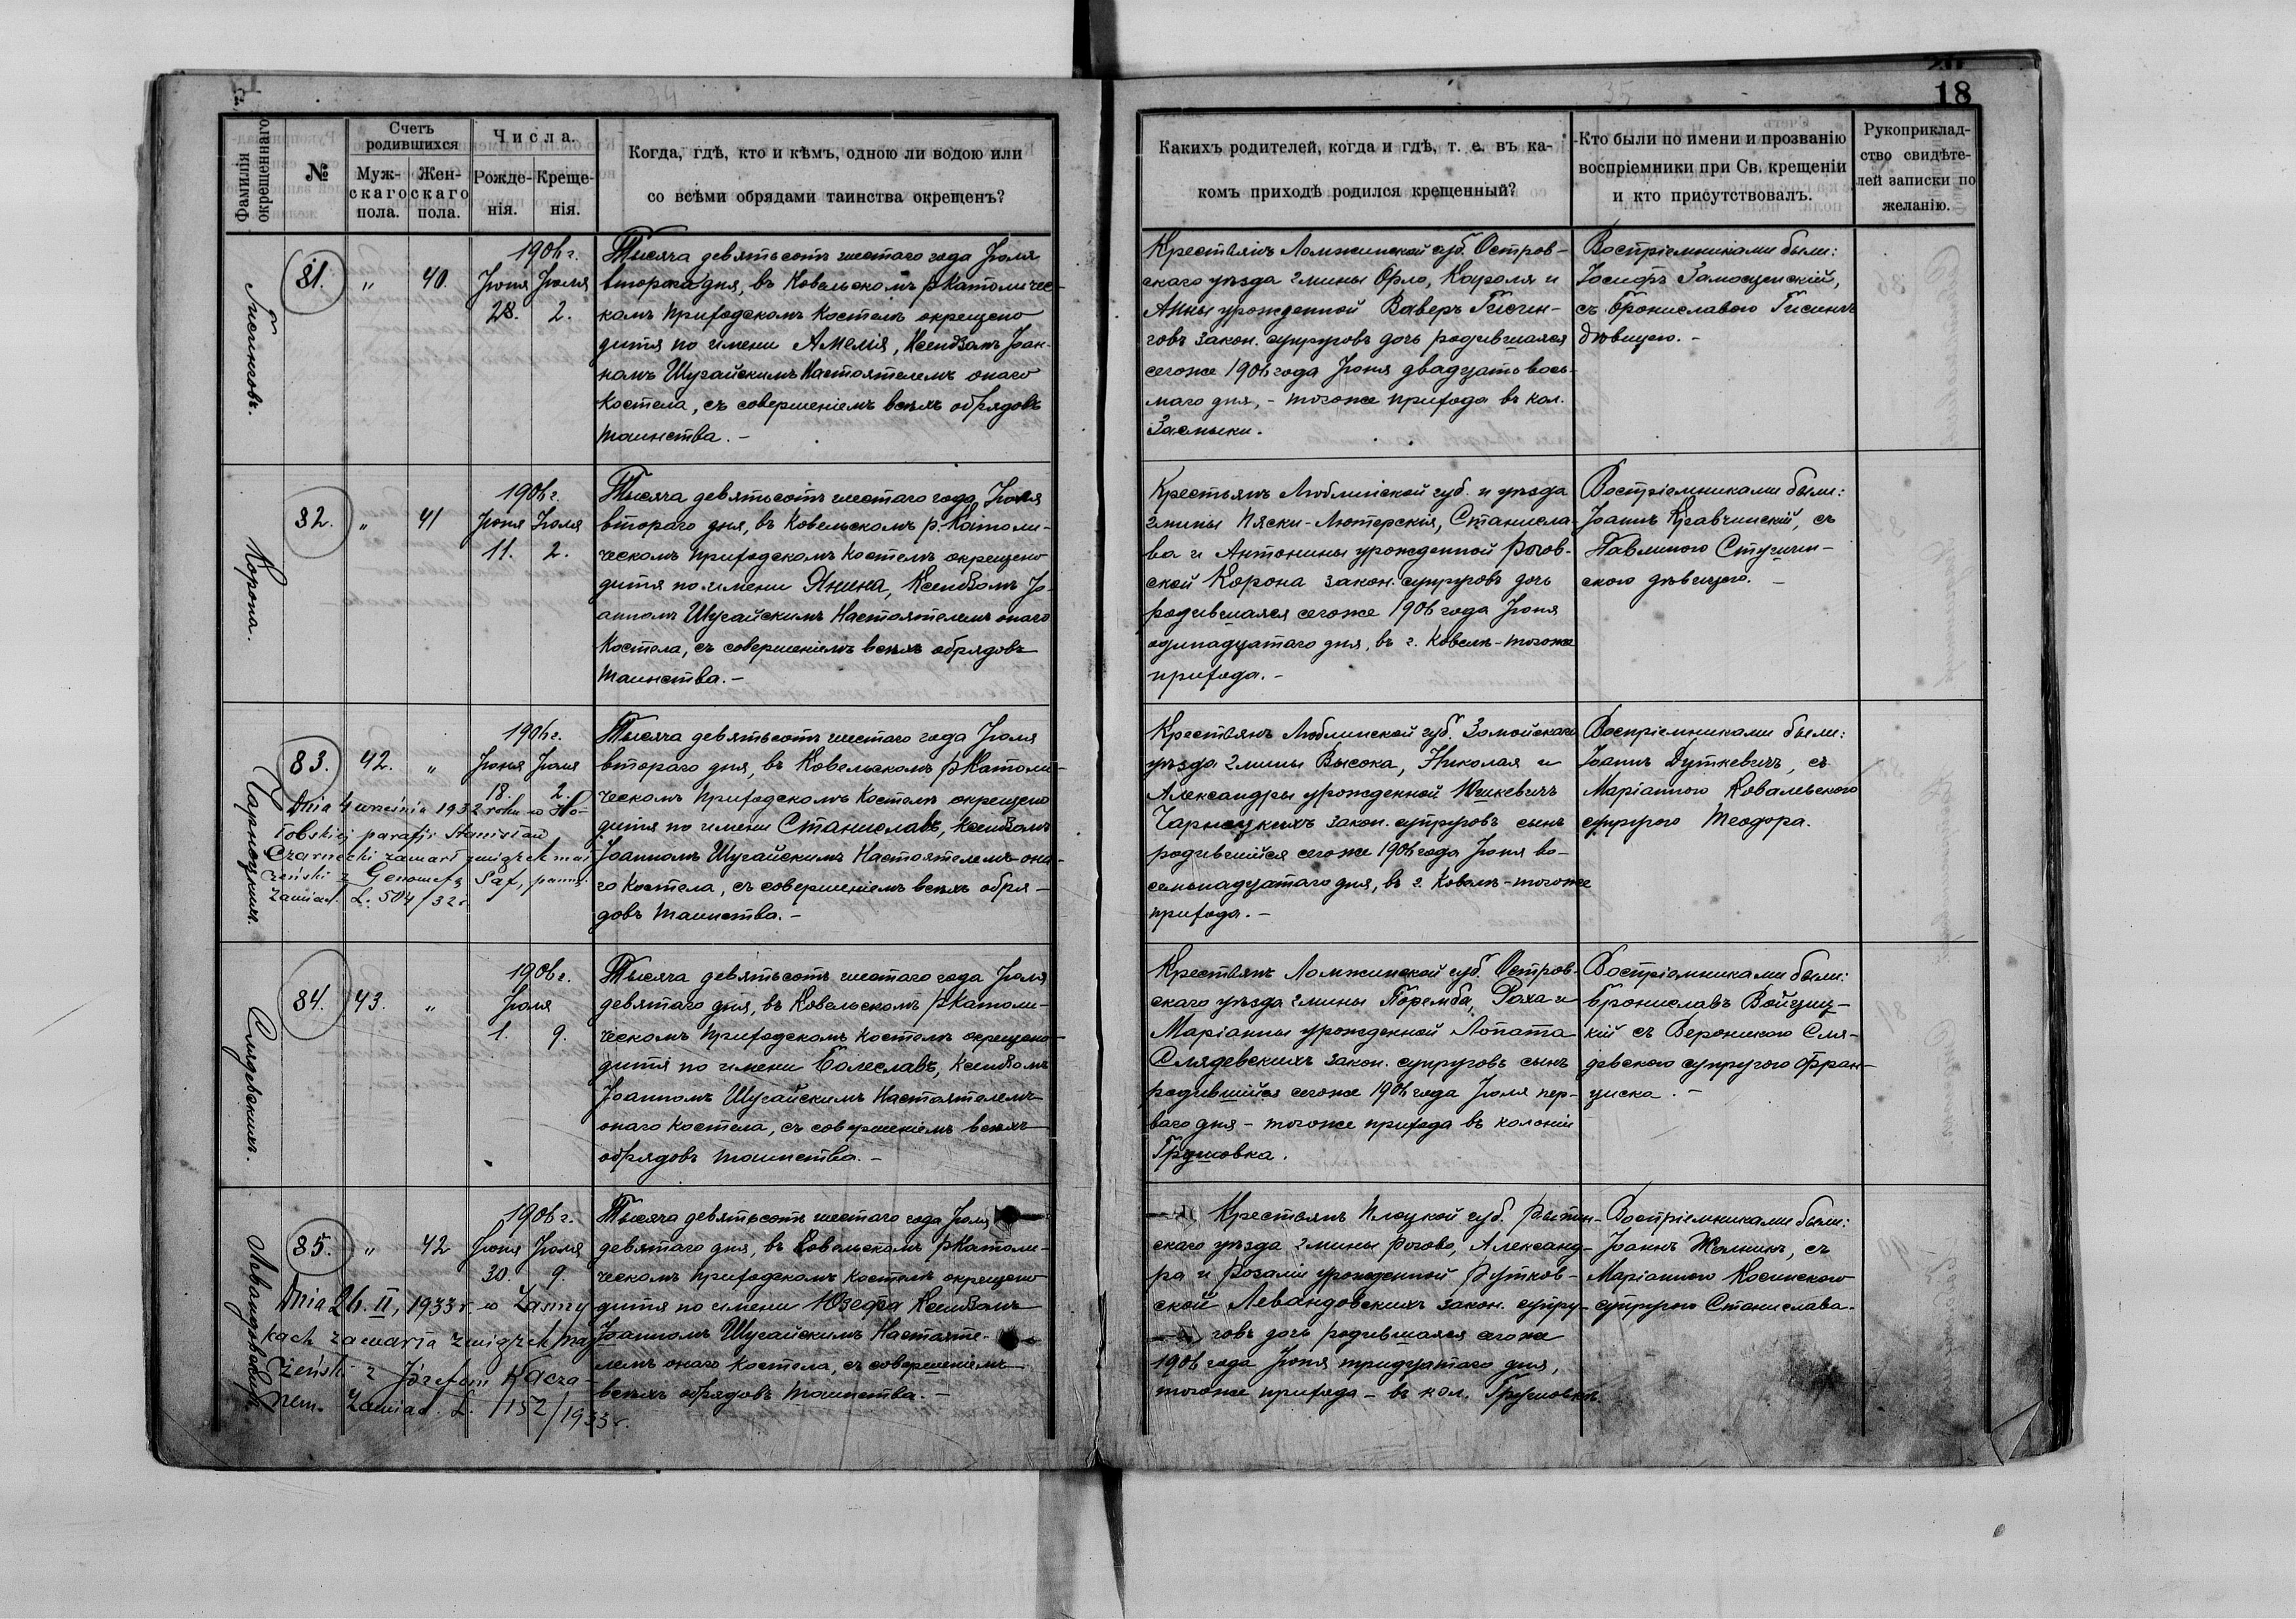 18
Фамиліи окрещеннаго
№
Счетъ родившихся
Муж-скаго пола.
Жен-скаго пола.
Числа.
Рожде-нія.
Креще-нія.
Когда, гдѣ, кто и кѣмъ, одною ли водою или
со всѣми обрядами таинства окрещенъ?
Какихъ родителей, когда и гдѣ, т. е. въ ка-
комъ приходѣ родился крещенный?
Кто были по имени и прозванію
воспріемники при Св. крещеніи
и кто присутствовалъ.
Рукоприклад-
ство свидѣте-
лей записки по
желанію.
Гисинговъ.
81.
"
40.
1906 г.
Іюня Іюля
28. 2.
Тысяча девятьсотъ шестаго года Іюля
втораго дня, въ Ковельскомъ р Католичес-
комъ приходскомъ костелѣ окрещено
дитя по имени Амелія, Ксендзомъ Іоан-
номъ Шугайскимъ Настоятелемъ онаго
Костела, съ совершеніемъ всѣхъ обрядовъ
таинства. –
Крестьянъ Ломжинской губ. Остров-
скаго уѣзда гмины Орло, Кароля и
Анны урожденной Ваверъ Гисин-
говъ закон. супруговъ дочь родившаяся
сегоже 1906 года Іюня двадцать вось-
маго дня, – тогоже прихода въ кол.
Засмыки.
Воспріемниками были:
Іосифъ Замощенскій,
съ Брониславою Гисингъ
дѣвицею. –
Корона.
82.
"
41
1906 г.
Іюня Іюля
11. 2.
Тысяча девятьсотъ шестаго года Іюля
втораго дня, въ Ковельскомъ р-Католи-
ческомъ приходскомъ костелѣ окрещено
дитя по имени Янина, Ксендзомъ Іо-
анномъ Шугайскимъ Настоятелемъ онаго
Костела, съ совершеніемъ всѣхъ обрядовъ
таинства. –
Крестьянъ Люблинской губ. и уѣзда
гмины Пяски-Лютерскія, Станисла-
ва и Антонины урожденной Рогов-
ской Корона закон. супруговъ дочь
родившаяся сегоже 1906 года Іюня
одинадцатаго дня, въ г. Ковелѣ – тогоже
прихода. –
Воспріемниками были:
Іоаннъ Кравчинскій, съ
Павлиною Студзин-
скою дѣвицею. –
Чарнецкихъ.
83.
42.
"
1906 г.
Іюня Іюля
18. 2.
Dnia 4 września 1932 roku w Ho-
łobskiej parafji Stanisław
Czarnecki zawarł związek mał-
żeński z Genowefą Saf, panną.
Zawiad. L. 504/32 r.
Тысяча девятьсотъ шестаго года Іюля
втораго дня, въ Ковельскомъ р Католи-
ческомъ приходскомъ Костелѣ окрещено
дитя по имени Станиславъ, Ксендзомъ
Іоанномъ Шугайскимъ Настоятелемъ она-
го Костела, съ совершеніемъ всѣхъ обря-
довъ таинства. –
Крестьянъ Люблинской губ. Замойскаго
уѣзда гмины Высока, Николая и
Александры урожденной Юшкевичъ
Чарнецкихъ закон. супруговъ сынъ
родившійся сегоже 1906 года Іюня во-
семнадцатаго дня, въ г. Ковелѣ – тогоже
прихода. –
Воспріемниками были:
Іоаннъ Дуткевичъ, съ
Маріанною Ковальскою
супругою Теодора.
Слядевскихъ.
84.
43.
"
1906 г.
Іюля
1. 9.
Тысяча девятьсотъ шестаго года Іюля
девятаго дня, въ Ковельскомъ р Католи-
ческомъ приходскомъ костелѣ окрещено
дитя по имени Болеславъ, Ксендзомъ
Іоанномъ Шугайскимъ Настоятелемъ
онаго костела, съ совершеніемъ всѣхъ
обрядовъ таинства. –
Крестьянъ Ломжинской губ. Остров-
скаго уѣзда гмины Поремба, Роха и
Маріанны урожденной Лопата
Слядевскихъ закон. супруговъ сынъ
родившійся сегоже 1906 года Іюля пер-
ваго дня – тогоже прихода въ колоніи
Грушовка.
Воспріемниками были:
Брониславъ Войциц-
кій съ Вероникою Сля-
девскою супругою Фран-
циска. –
Левандовскихъ.
85.
"
42
1906 г.
Іюня Іюля
30. 9.
Dnia 26. II, 1933 r. w Zasmy-
kach zawarła związek mał-
żeński z Józefem Kacza-
nem. Zawiad. L. 1152/1933 r.
Тысяча девятьсотъ шестаго года Іюля
девятаго дня, въ Ковельскомъ р Католи-
ческомъ приходскомъ костелѣ окрещено
дитя по имени Юзефа Ксендзомъ
Іоанномъ Шугайскимъ Настояте-
лемъ онаго костела, съ совершеніемъ
всѣхъ обрядовъ таинства. –
Крестьянъ Плоцкой губ. Рыпин-
скаго уѣзда гмины Рогово, Александ-
ра и Розаліи урожденной Рутков-
ской Левандовскихъ закон. супру-
говъ дочь родившаяся сегоже
1906 года Іюня тридцатаго дня,
тогоже прихода – въ кол. Грушовкѣ.
Воспріемниками были:
Іоаннъ Жолникъ, съ
Маріанною Косинскою
супругою Станислава.